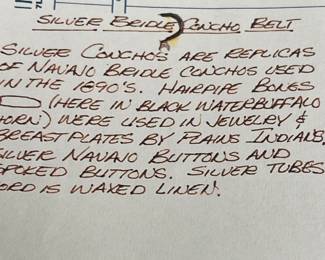 SILVER BRIDLE CONCHO BELT
SILVER CONCHOS ARE REPLICAS
OF NAVAJO BRIDLE CONCHOS USED
IN THE 1890'S. HAIRPIPE BONES
(HERE IN BLACK WATERBUFFALO
HORN) WERE USED IN JEWELRY &
BREASTPLATES BY PLAINS INDIANS.
SILVER NAVAJO BUTTONS AND
SPOKED BUTTONS. SILVER TUBES
CORD IS WAXED LINEN.